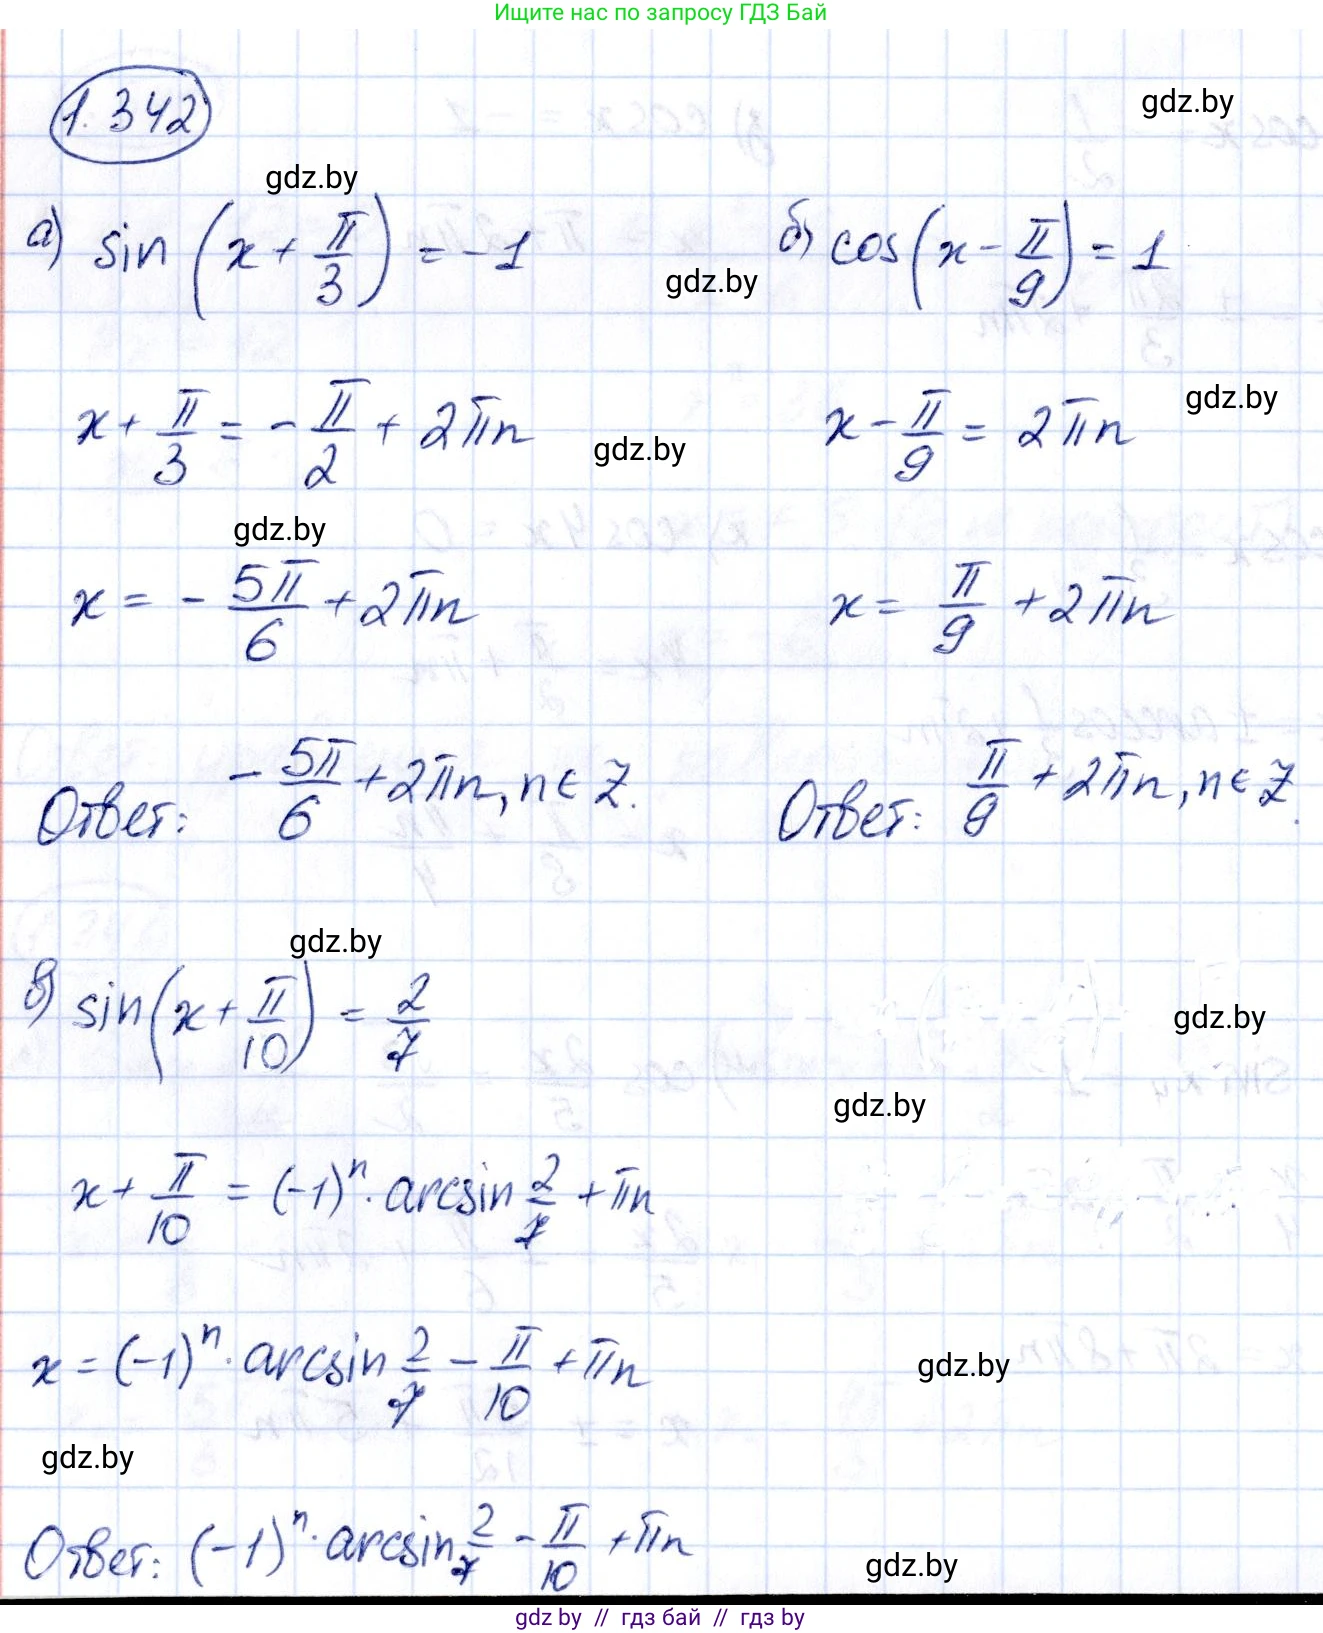 Ищите нас по запросу ГДЗ Бай
1.342
gdz.by
gdz.by
а) sin (x + π/3) = -1
gdz.by
б) cos(x - π/9) = 1
x + π/3 = - π/2 + 2πn
gdz.by
x - π/9 = 2πn
gdz.by
gdz.by
x = - 5π/6 + 2πn
x = π/9 + 2πn
Ответ: - 5π/6 + 2πn, n ∈ Z.
Ответ: π/9 + 2πn, n ∈ Z.
gdz.by
в) sin(x + π/10) = 2/7
gdz.by
gdz.by
x + π/10 = (-1)ⁿ · arcsin 2/7 + πn
x = (-1)ⁿ · arcsin 2/7 - π/10 + πn
gdz.by
gdz.by
Ответ: (-1)ⁿ · arcsin 2/7 - π/10 + πn
gdz.by
gdz by // гдз бай // гдз by